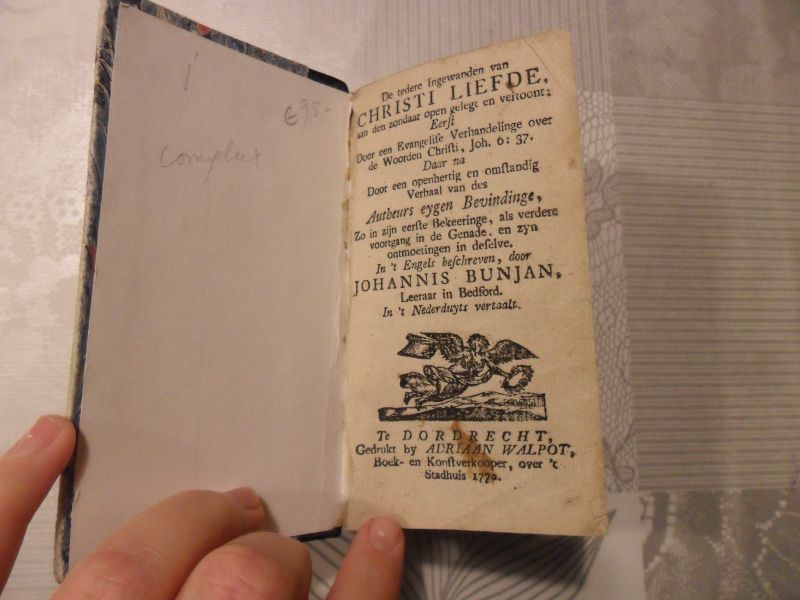 € 95,-
complex
De tedere Ingewanden van
CHRISTI LIEFDE,
aan den zondaar open gelegt en vertoont:
Eerst
Door een Evangelise Verhandelinge over
de Woorden Christi, Joh. 6: 37.
Daar na
Door een openhertig en omstandig
Verhaal van des
Autheurs eygen Bevindinge,
Zo in zijn eerste Bekeeringe, als verdere
voortgang in de Genade, en zyn
ontmoetingen in deselve.
In 't Engels beschreven, door
JOHANNIS BUNJAN,
Leeraar in Bedford.
In 't Nederduyts vertaalt.
Te DORDRECHT,
Gedrukt by ADRIAAN WALPOT,
Boek- en Konstverkooper, over 't
Stadhuis 1770.